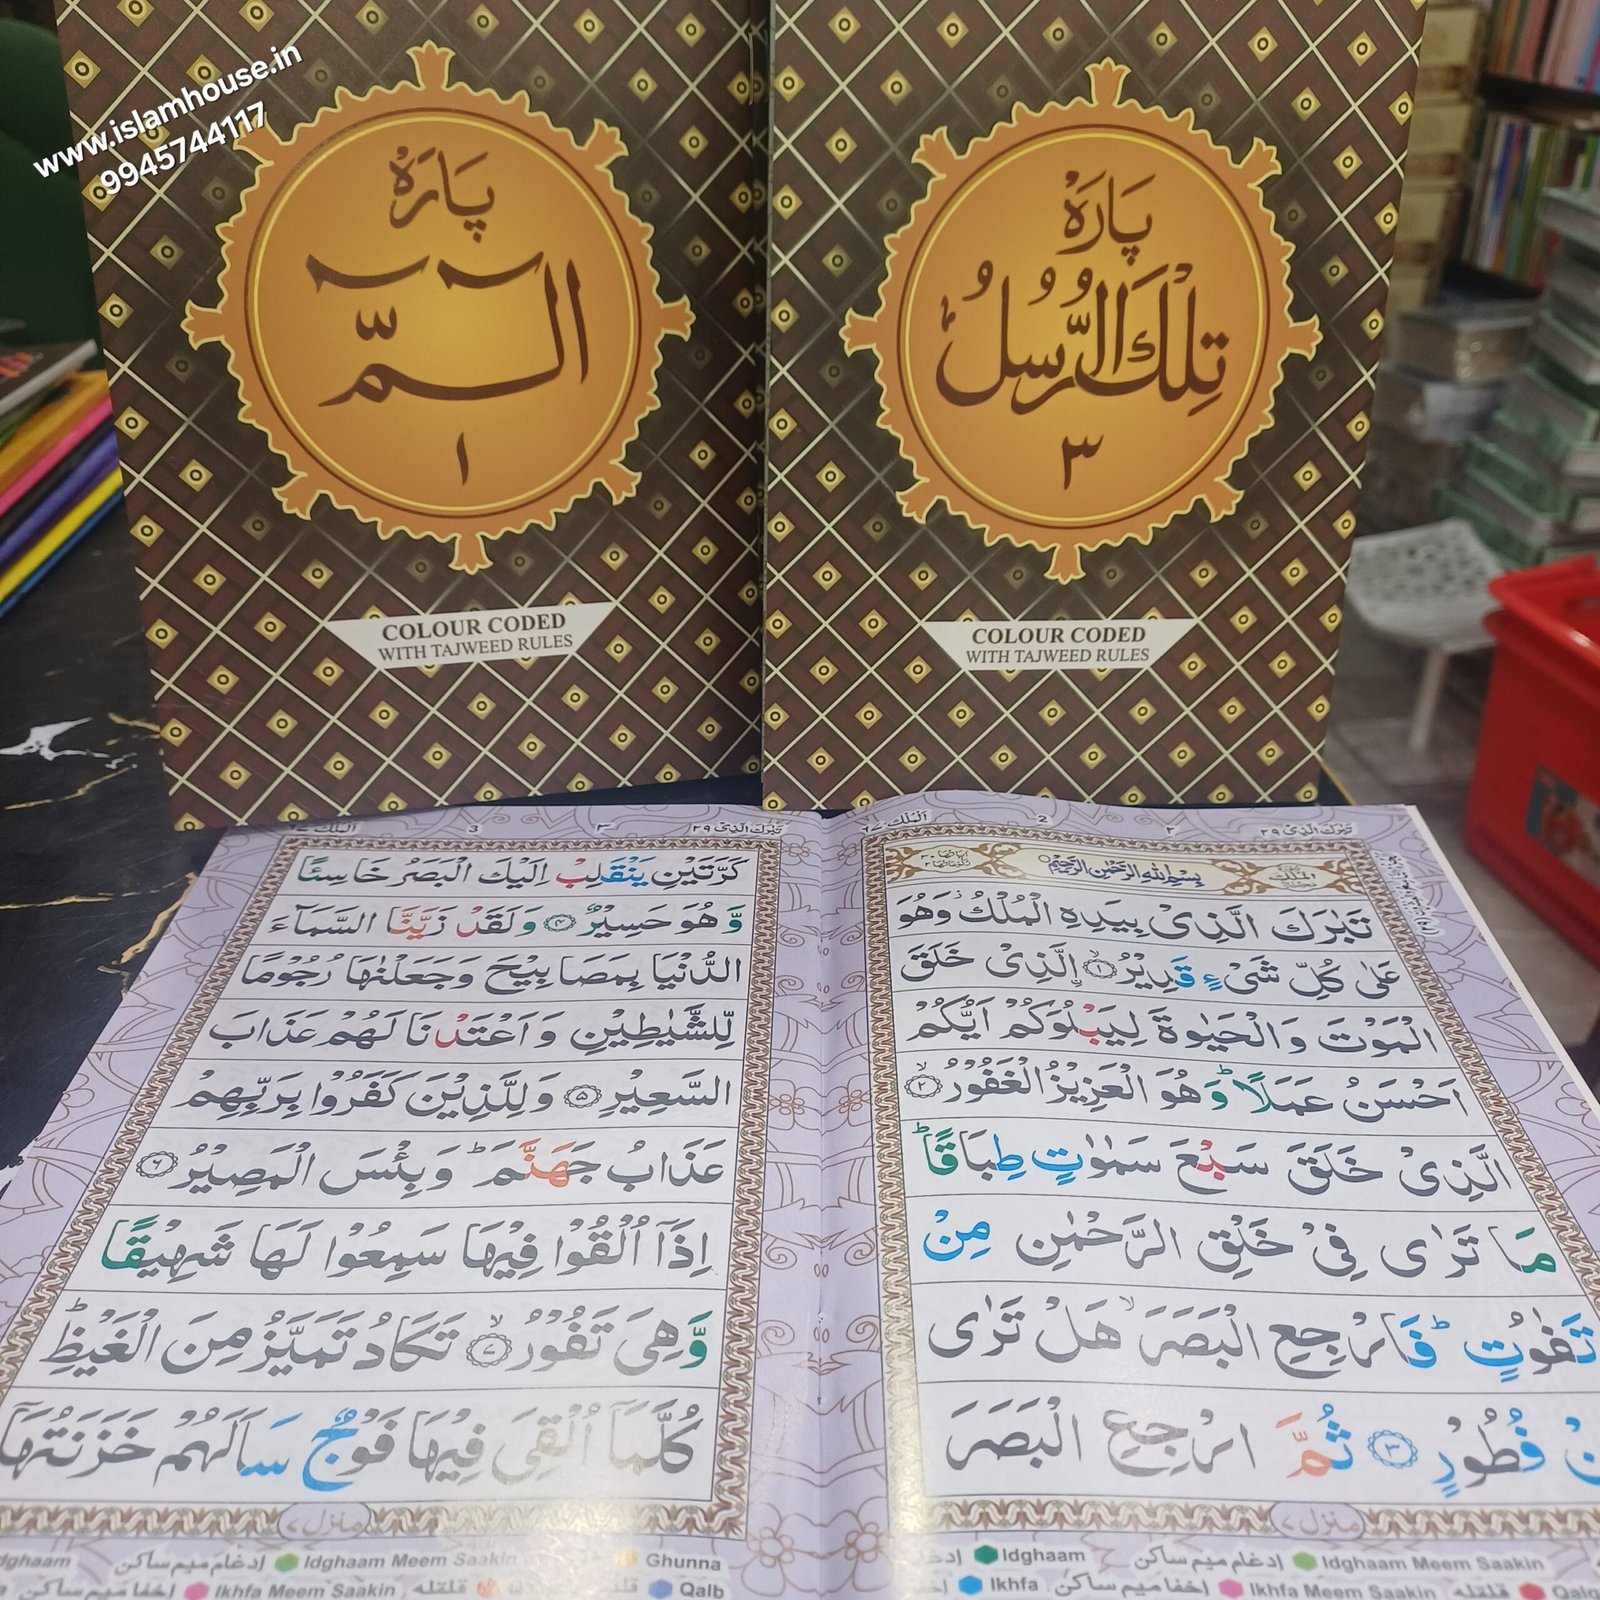 www.islamhouse.in
9945744117
پَارَهْ
الٓـمّٓ
١
COLOUR CODED
WITH TAJWEED RULES
پَارَهْ
تِلْكَ الرُّسُلُ
٣
COLOUR CODED
WITH TAJWEED RULES
تَبٰرَكَ الَّذِیْ ٢٩
٢
2
اَلْمُلْك ٦٧
بِسْمِ اللّٰهِ الرَّحْمٰنِ الرَّحِیْمِ
تَبٰرَكَ الَّذِیْ بِیَدِهِ الْمُلْكُ ؗ وَهُوَ
عَلٰی كُلِّ شَیْءٍ قَدِیْرُ ۙ۝١ اِ۟لَّذِیْ خَلَقَ
الْمَوْتَ وَالْحَیٰوةَ لِیَبْلُوَكُمْ اَیُّكُمْ
اَحْسَنُ عَمَلًا ؕ وَهُوَ الْعَزِیْزُ الْغَفُوْرُ ۙ۝٢
الَّذِیْ خَلَقَ سَبْعَ سَمٰوٰتٍ طِبَاقًا ؕ
مَا تَرٰی فِیْ خَلْقِ الرَّحْمٰنِ مِنْ
تَفٰوُتٍ ؕ فَارْجِعِ الْبَصَرَ ۙ هَلْ تَرٰی
فُطُوْرٍ ۝٣ ثُمَّ ارْجِعِ الْبَصَرَ
منزل ٧
تَبٰرَكَ الَّذِیْ ٢٩
٣
3
اَلْمُلْك ٦٧
كَرَّتَیْنِ یَنْقَلِبْ اِلَیْكَ الْبَصَرُ خَاسِئًا
وَّهُوَ حَسِیْرٌ ۝٤ وَلَقَدْ زَیَّنَّا السَّمَآءَ
الدُّنْیَا بِمَصَابِیْحَ وَجَعَلْنٰهَا رُجُوْمًا
لِّلشَّیٰطِیْنِ وَاَعْتَدْنَا لَهُمْ عَذَابَ
السَّعِیْرِ ۝٥ وَلِلَّذِیْنَ كَفَرُوْا بِرَبِّهِمْ
عَذَابُ جَهَنَّمَ ؕ وَبِئْسَ الْمَصِیْرُ ۝٦
اِذَاۤ اُلْقُوْا فِیْهَا سَمِعُوْا لَهَا شَهِیْقًا
وَّهِیَ تَفُوْرُ ۙ۝٧ تَكَادُ تَمَیَّزُ مِنَ الْغَیْظِ ؕ
كُلَّمَاۤ اُلْقِیَ فِیْهَا فَوْجٌ سَاَلَهُمْ خَزَنَتُهَاۤ
منزل ٧
ادغام میم ساکن Idghaam Meem Saakin Ghunna
اخفا میم ساکن Ikhfa Meem Saakin قلقلہ Qalb
Idghaam ادغام میم ساکن Idghaam Meem Saakin
Ikhfa اخفا میم ساکن Ikhfa Meem Saakin قلقلہ